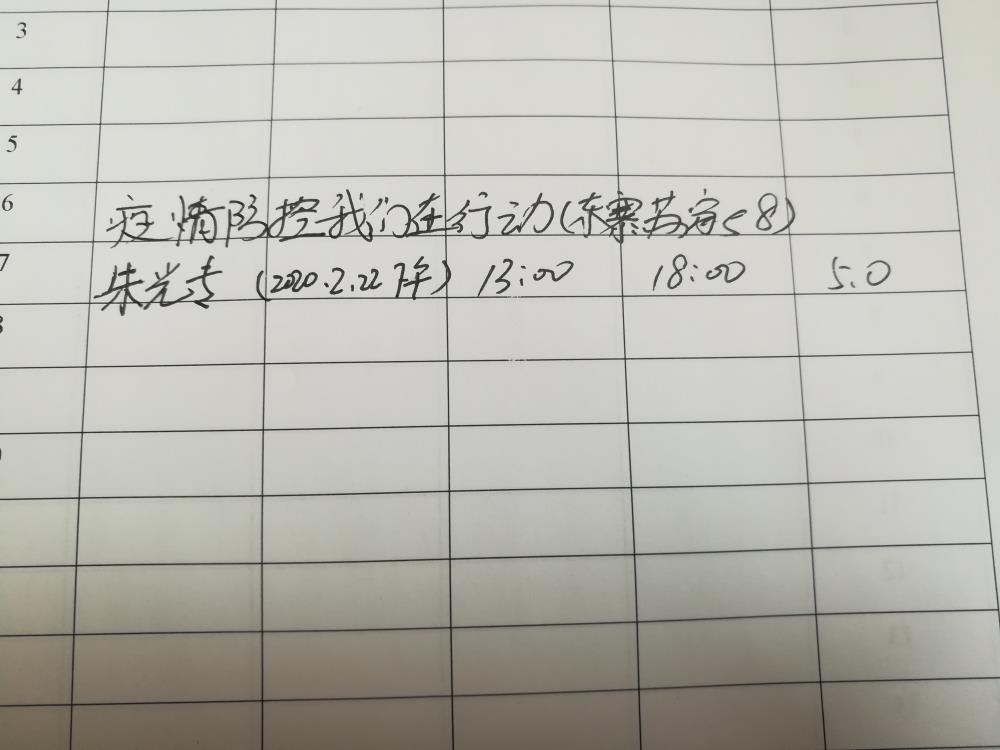 3
4
5
6 疫情防控我们在行动(东寨苏容58)
7 朱光 (2020.2.22 下午) 13:00 18:00 5.0
8